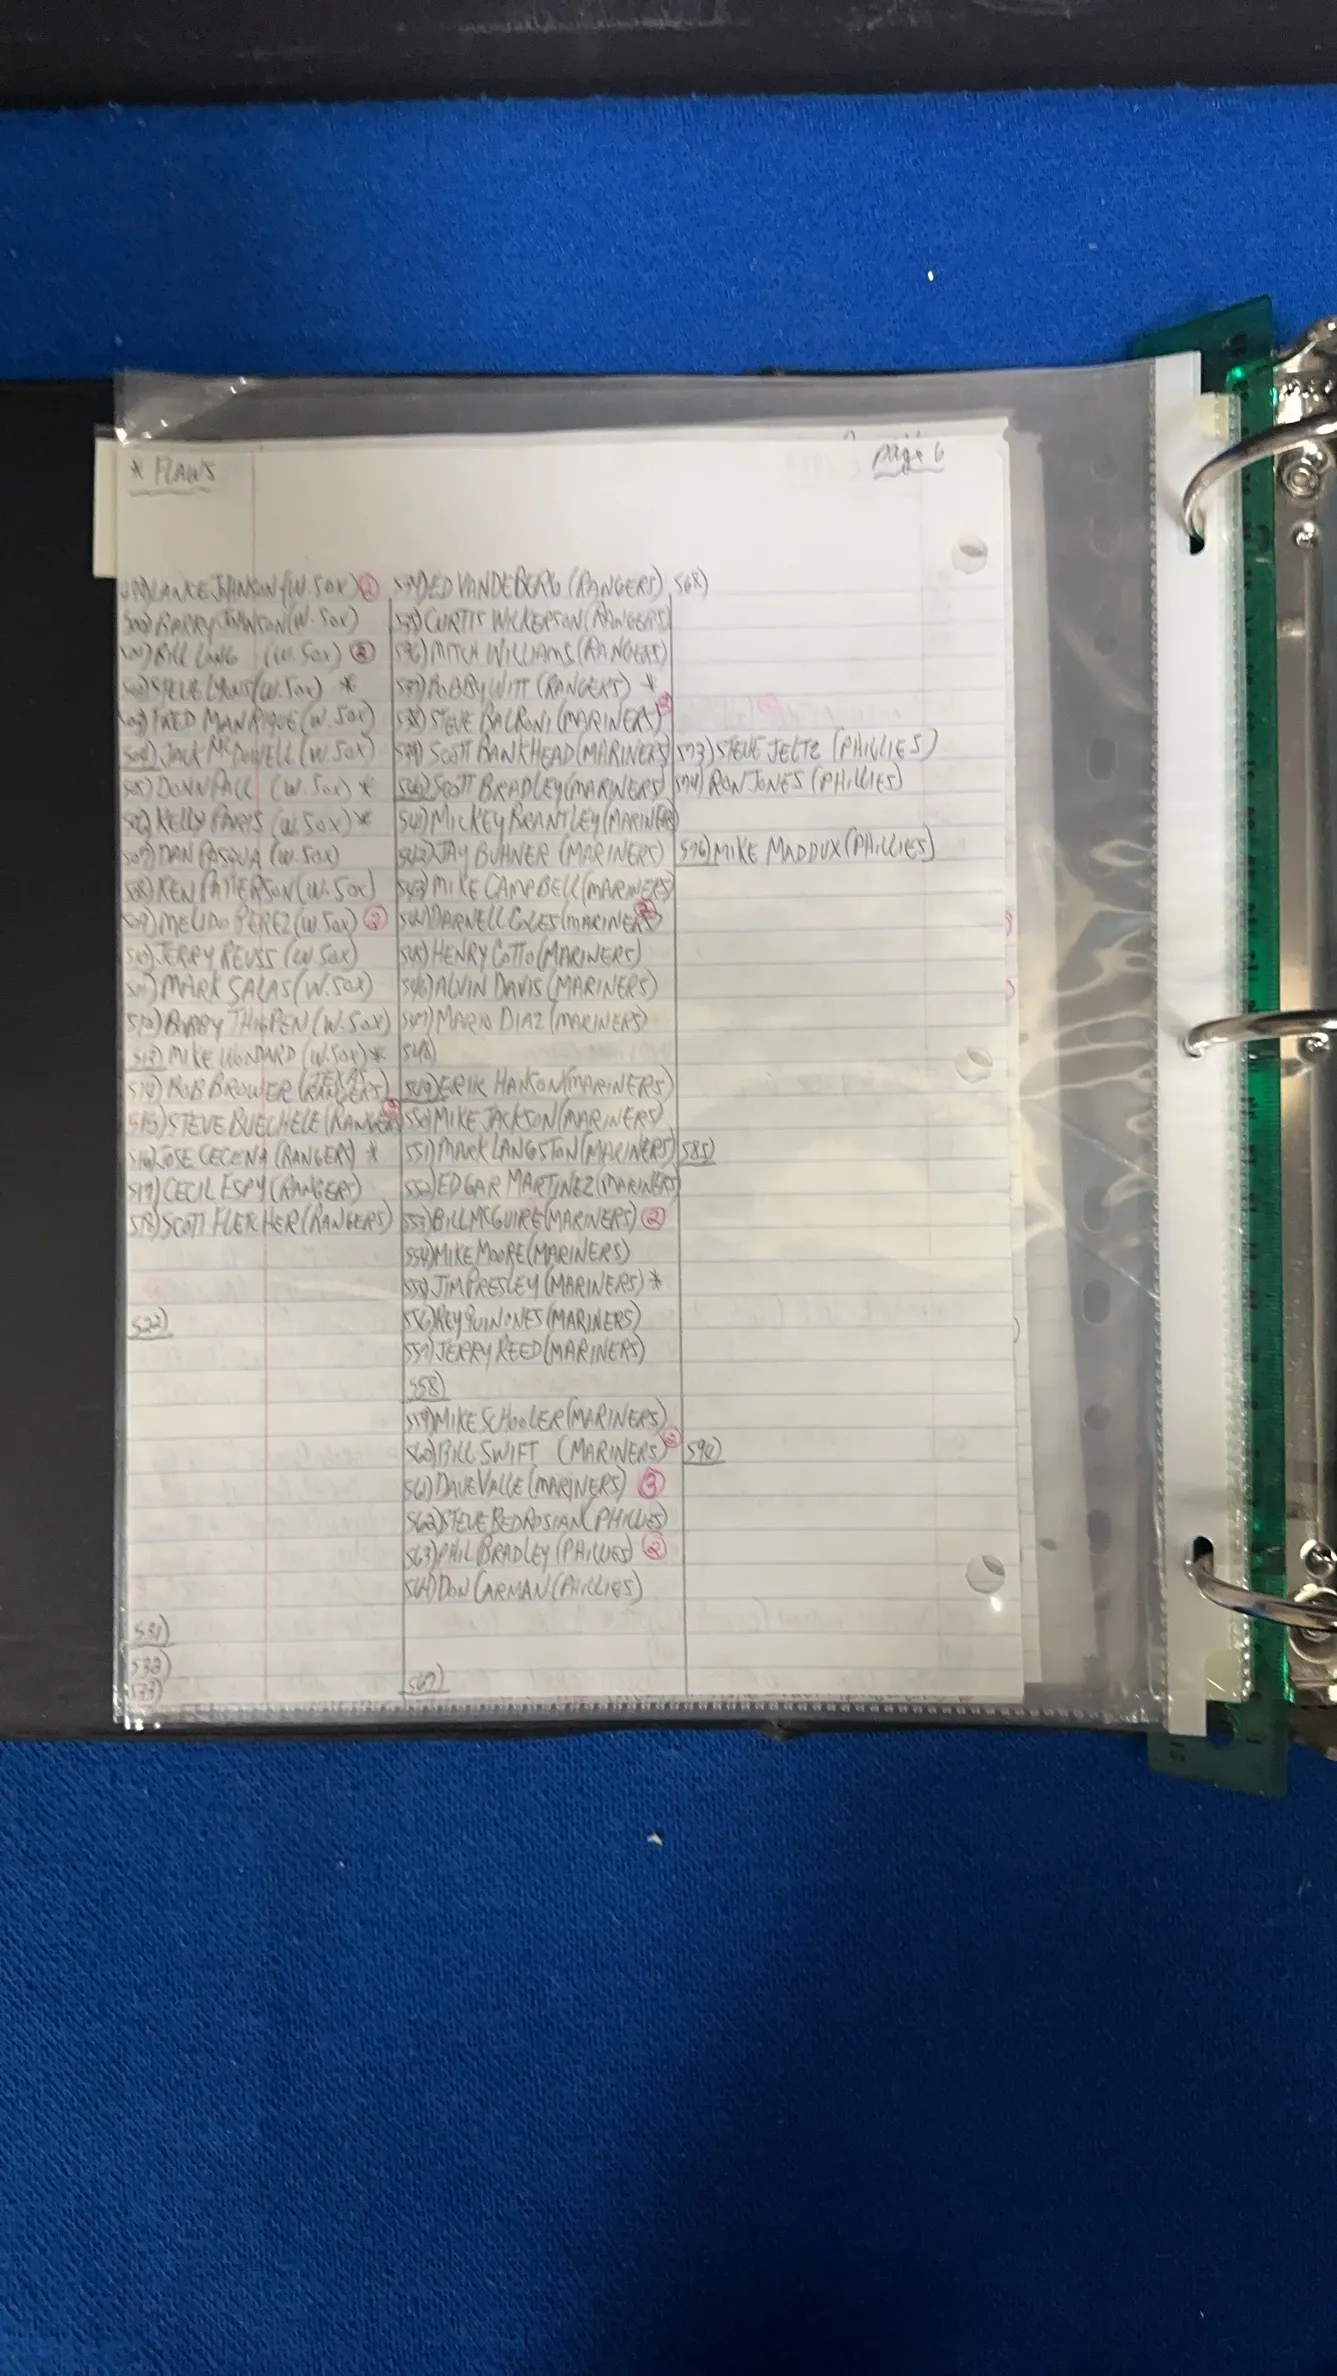 * FLAWS
page 6
499) LANCE JOHNSON (W. SOX) 2
500) BARRY JOHNSON (W. SOX)
501) BILL LONG (W. SOX) 2
502) STEVE LYONS (W. SOX) *
503) FRED MANRIQUE (W. SOX)
504) JACK McDOWELL (W. SOX)
505) DONN PALL (W. SOX) *
506) KELLY PARIS (W. SOX) *
507) DAN PASQUA (W. SOX)
508) KEN PATTERSON (W. SOX)
509) MELIDO PEREZ (W. SOX) 2
510) JERRY REUSS (W SOX)
511) MARK SALAS (W. SOX)
512) BOBBY THIGPEN (W. SOX)
513) MIKE WOODARD (W. SOX) *
514) BOB BROWER (RANGERS)
515) STEVE BUECHELE (RANGERS)
516) JOSE CECENA (RANGERS) *
517) CECIL ESPY (RANGERS)
518) SCOTT FLETCHER (RANGERS)
522)
531)
532)
533)
534) ED VANDEBERG (RANGERS)
535) CURTIS WILKERSON (RANGERS)
536) MITCH WILLIAMS (RANGERS)
537) BOBBY WITT (RANGERS) *
538) STEVE BALBONI (MARINERS)
539) SCOTT BANKHEAD (MARINERS)
540) SCOTT BRADLEY (MARINERS)
541) MICKEY BRANTLEY (MARINER)
542) JAY BUHNER (MARINERS)
543) MIKE CAMPBELL (MARINERS)
544) DARNELL COLES (MARINERS) 2
545) HENRY COTTO (MARINERS)
546) ALVIN DAVIS (MARINERS)
547) MARIO DIAZ (MARINERS)
548)
549) ERIK HANSON (MARINERS)
550) MIKE JACKSON (MARINERS)
551) MARK LANGSTON (MARINERS)
552) EDGAR MARTINEZ (MARINERS)
553) BILL McGUIRE (MARINERS) 2
554) MIKE MOORE (MARINERS)
555) JIM PRESLEY (MARINERS) *
556) REY QUINONES (MARINERS)
557) JERRY REED (MARINERS)
558)
559) MIKE SCHOOLER (MARINERS)
560) BILL SWIFT (MARINERS) 2
561) DAVE VALLE (MARINERS) 3
562) STEVE BEDROSIAN (PHILLIES)
563) PHIL BRADLEY (PHILLIES) 2
564) DON CARMAN (PHILLIES)
567)
568)
573) STEVE JELTZ (PHILLIES)
574) RON JONES (PHILLIES)
576) MIKE MADDUX (PHILLIES)
585)
594)